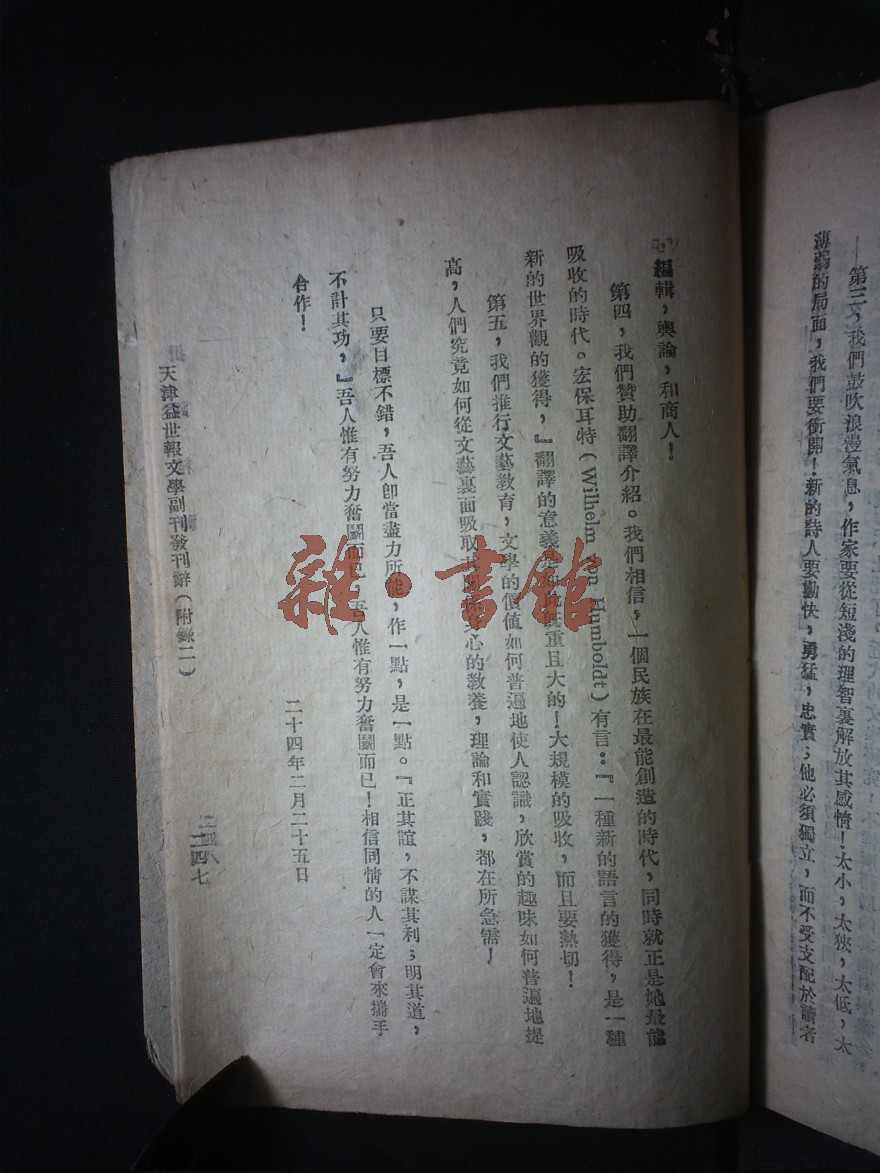 第三，我們鼓吹浪漫氣息，作家要從短淺的理智裏解放其感情！太小，太狹，太低，太
薄弱的局面，我們要衝開！新的詩人要勤快，勇猛，忠實；他必須獨立，而不受支配於讀者
編輯，輿論，和商人！
第四，我們贊助翻譯介紹。我們相信，一個民族在最能創造的時代，同時就正是她最能
吸收的時代。宏保耳特(Wilhelm von Humboldt)有言：『一種新的語言的獲得，是一種
新的世界觀的獲得，』翻譯的意義是如此旣重且大的！大規模的吸收，而且要熱切！
第五，我們推行文藝教育，文學的價值如何普遍地使人認識，欣賞的趣味如何普遍地提
高，人們究竟如何從文藝裏面吸取其心的教養，理論和實踐，都在所急需！
只要目標不錯，吾人卽當盡力所能，作一點，是一點。『正其誼，不謀其利；明其道，
不計其功，』吾人惟有努力奮鬭而已，吾人惟有努力奮鬭而已！相信同情的人一定會來攜手
合作！
二十四年二月二十五日
天津益世報文學副刊發刊辭（附錄二）
二四七
雜·書館